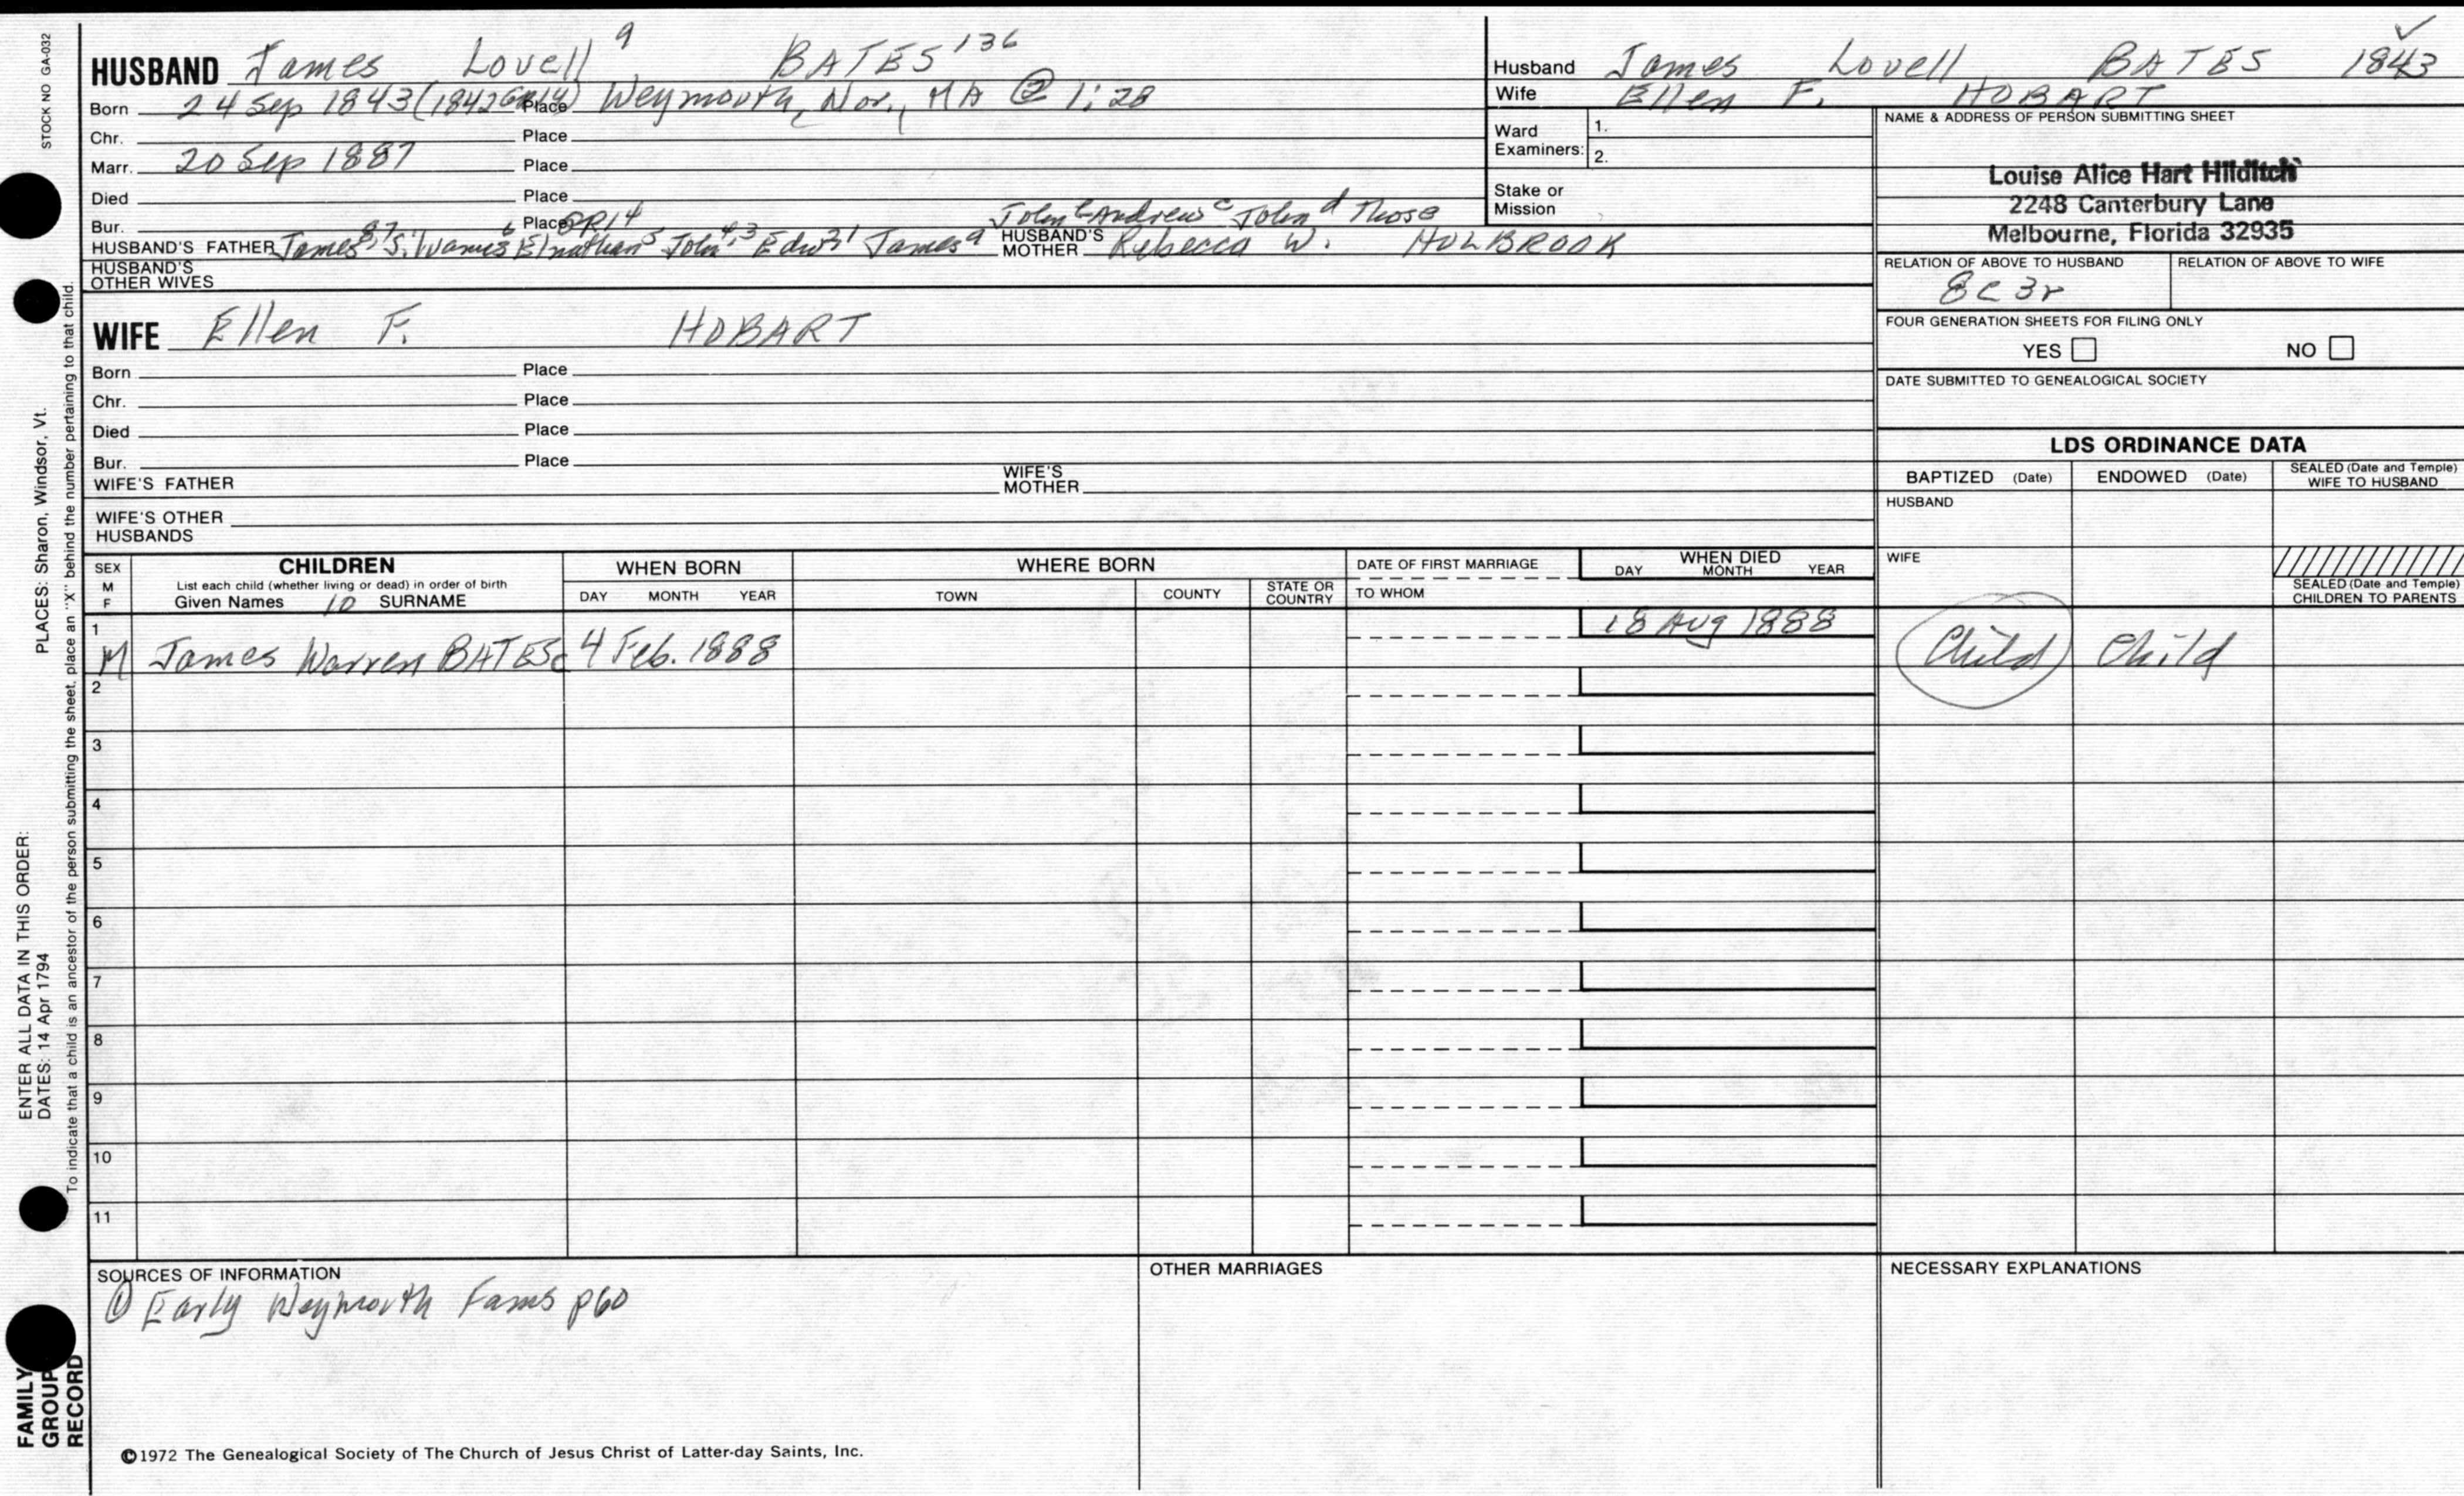 STOCK NO GA-032
HUSBAND James Lovell 9 BATES 136
Born 24 Sep 1843 (1842 GR14) Place Weymouth, Nor., MA @ 1:28
Chr. Place
Marr. 20 Sep 1887 Place
Died Place
Bur. Place GR14
John Andrew c John d Thos e
HUSBAND'S FATHER James 8,7 S. Elnathan 5 John 4,3 Edw 2 James a HUSBAND'S MOTHER Rebecca W. HOLBROOK
HUSBAND'S OTHER WIVES
Husband James Lovell BATES 1843
Wife Ellen F. HOBART
Ward Examiners: 1.
2.
Stake or Mission
NAME & ADDRESS OF PERSON SUBMITTING SHEET
Louise Alice Hart Hilditch
2248 Canterbury Lane
Melbourne, Florida 32935
RELATION OF ABOVE TO HUSBAND RELATION OF ABOVE TO WIFE
8c 3r
FOUR GENERATION SHEETS FOR FILING ONLY
YES NO
DATE SUBMITTED TO GENEALOGICAL SOCIETY
WIFE Ellen F. HOBART
Born Place
Chr. Place
Died Place
Bur. Place
WIFE'S FATHER WIFE'S MOTHER
WIFE'S OTHER HUSBANDS
LDS ORDINANCE DATA
BAPTIZED (Date) ENDOWED (Date) SEALED (Date and Temple) WIFE TO HUSBAND
HUSBAND
WIFE
SEALED (Date and Temple) CHILDREN TO PARENTS
SEX M F CHILDREN WHEN BORN WHERE BORN DATE OF FIRST MARRIAGE WHEN DIED
List each child (whether living or dead) in order of birth
Given Names 10 SURNAME DAY MONTH YEAR TOWN COUNTY STATE OR COUNTRY TO WHOM DAY MONTH YEAR
1 M James Warren BATES 4 Feb. 1888 18 Aug 1888 Child Child
2
3
4
5
6
7
8
9
10
11
SOURCES OF INFORMATION OTHER MARRIAGES NECESSARY EXPLANATIONS
① Early Weymouth Fams p60
©1972 The Genealogical Society of The Church of Jesus Christ of Latter-day Saints, Inc.
FAMILY GROUP RECORD
ENTER ALL DATA IN THIS ORDER:
DATES: 14 Apr 1794
PLACES: Sharon, Windsor, Vt.
To indicate that a child is an ancestor of the person submitting the sheet, place an "X" behind the number pertaining to that child.